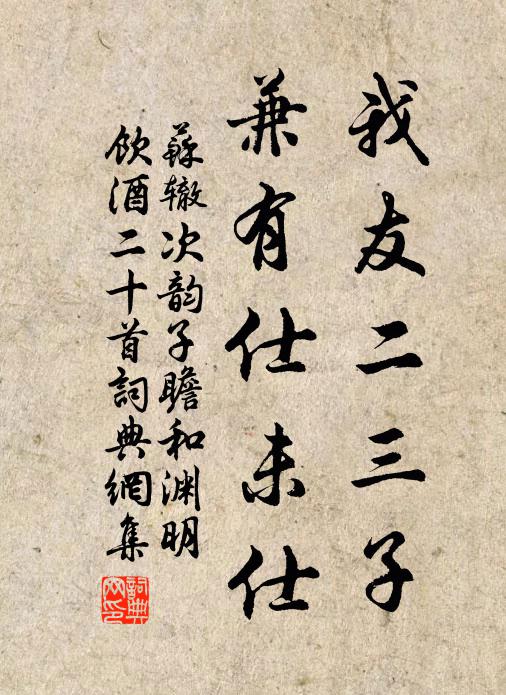 我友二三子
兼有仕未仕
蘇辙次韵子瞻和渊明
飲酒二十首詞典網集
詞典网印